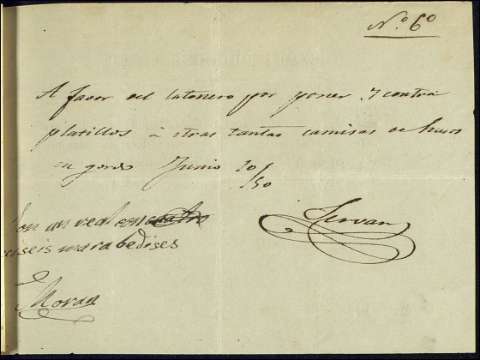 Nº 6º
A favor del latonero por poner 7 contra
platillos a otras tantas camisas de hueso
en gordo Junio 20/50
Servan
Son un real con
y seis marabedises
Moran